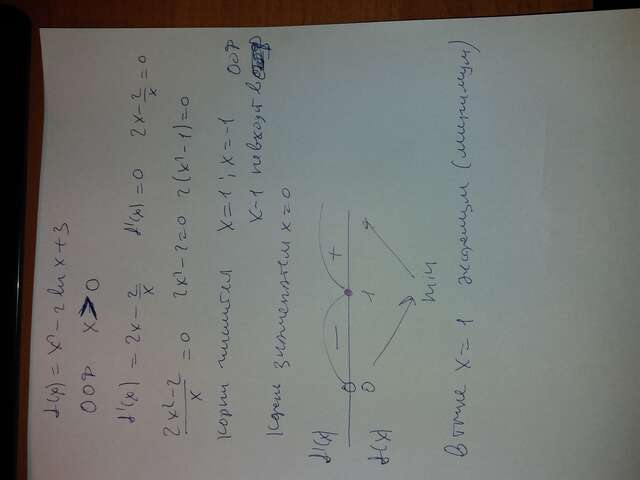 f(x) = x² - 2 ln x + 3
ООФ x > 0
f'(x) = 2x - 2/x f'(x) = 0 2x - 2/x = 0
(2x² - 2)/x = 0 2x² - 2 = 0 2(x² - 1) = 0
корни числителя x = 1 ; x = -1
x - 1 не входит в ООФ
Корни знаменателя x = 0
f'(x) - +
0 1
f(x)
min
В точке x = 1 экстремум (минимум)